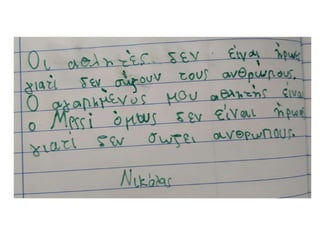 Οι αθλητές δεν είναι ήρωες
γιατί δεν σώζουν τους ανθρώπους.
Ο αγαπημένος μου αθλητής είναι
ο Μεssi όμως δεν είναι ήρωας
γιατί δεν σώζει ανθρώπους.
Νικόλας